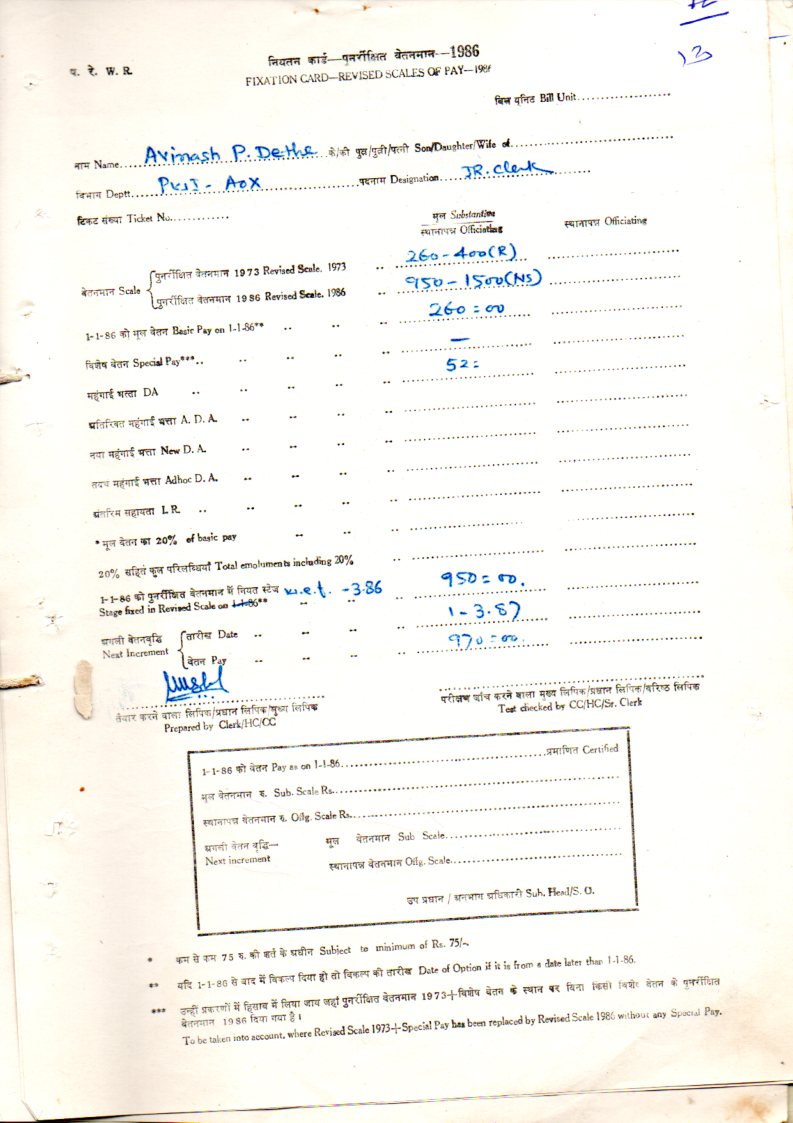 13
प. रे. W. R.
नियतन कार्ड—पुनर्रीक्षित वेतनमान—1986
FIXATION CARD—REVISED SCALES OF PAY—1986
बिल यूनिट Bill Unit
नाम Name Avinash P. Dethe के/की पुत्र/पुत्री/पत्नी Son/Daughter/Wife of
विभाग Deptt. AOX पदनाम Designation JR. Clerk
टिकट संख्या Ticket No.
मूल Substantive
स्थानापन्न Officiating स्थानापन्न Officiating
वेतनमान Scale
पुनर्रीक्षित वेतनमान 1973 Revised Scale, 1973 260-400(R)
पुनर्रीक्षित वेतनमान 1986 Revised Scale, 1986 950-1500(NS)
1-1-86 को मूल वेतन Basic Pay on 1-1-86** 260=00
विशेष वेतन Special Pay*** —
महंगाई भत्ता DA 52=
अतिरिक्त महंगाई भत्ता A. D. A.
नया महंगाई भत्ता New D. A.
तदर्थ महंगाई भत्ता Adhoc D. A.
अंतरिम सहायता I. R.
*मूल वेतन का 20% of basic pay
20% सहित कुल परिलब्धियाँ Total emoluments including 20%
1-1-86 को पुनर्रीक्षित वेतनमान में नियत स्टेज w.e.f. -3.86 950=00.
Stage fixed in Revised Scale on 1-1-86**
अगली वेतनवृद्धि
Next Increment
तारीख Date 1-3.87
वेतन Pay 970=00.
तैयार करने वाला लिपिक/प्रधान लिपिक/मुख्य लिपिक
Prepared by Clerk/HC/CC
परीक्षण जाँच करने वाला मुख्य लिपिक/प्रधान लिपिक/वरिष्ठ लिपिक
Test checked by CC/HC/Sr. Clerk
1-1-86 को वेतन Pay as on 1-1-86 प्रमाणित Certified
मूल वेतनमान रु. Sub. Scale Rs.
स्थानापन्न वेतनमान रु. Offg. Scale Rs.
अगली वेतन वृद्धि— मूल वेतनमान Sub Scale
Next increment
स्थानापन्न वेतनमान Offg. Scale
उप प्रधान / अनभाग अधिकारी Sub. Head/S. O.
* कम से कम 75 रु. की शर्त के अधीन Subject to minimum of Rs. 75/-.
** यदि 1-1-86 से बाद में विकल्प दिया हो तो विकल्प की तारीख Date of Option if it is from a date later than 1-1-86.
*** उन्हीं प्रकरणों में हिसाब में लिया जाय जहाँ पुनर्रीक्षित वेतनमान 1973+विशेष वेतन के स्थान पर बिना किसी विशेष वेतन के पुनर्रीक्षित
वेतनमान 1986 दिया गया है।
To be taken into account, where Revised Scale 1973+Special Pay has been replaced by Revised Scale 1986 without any Special Pay.